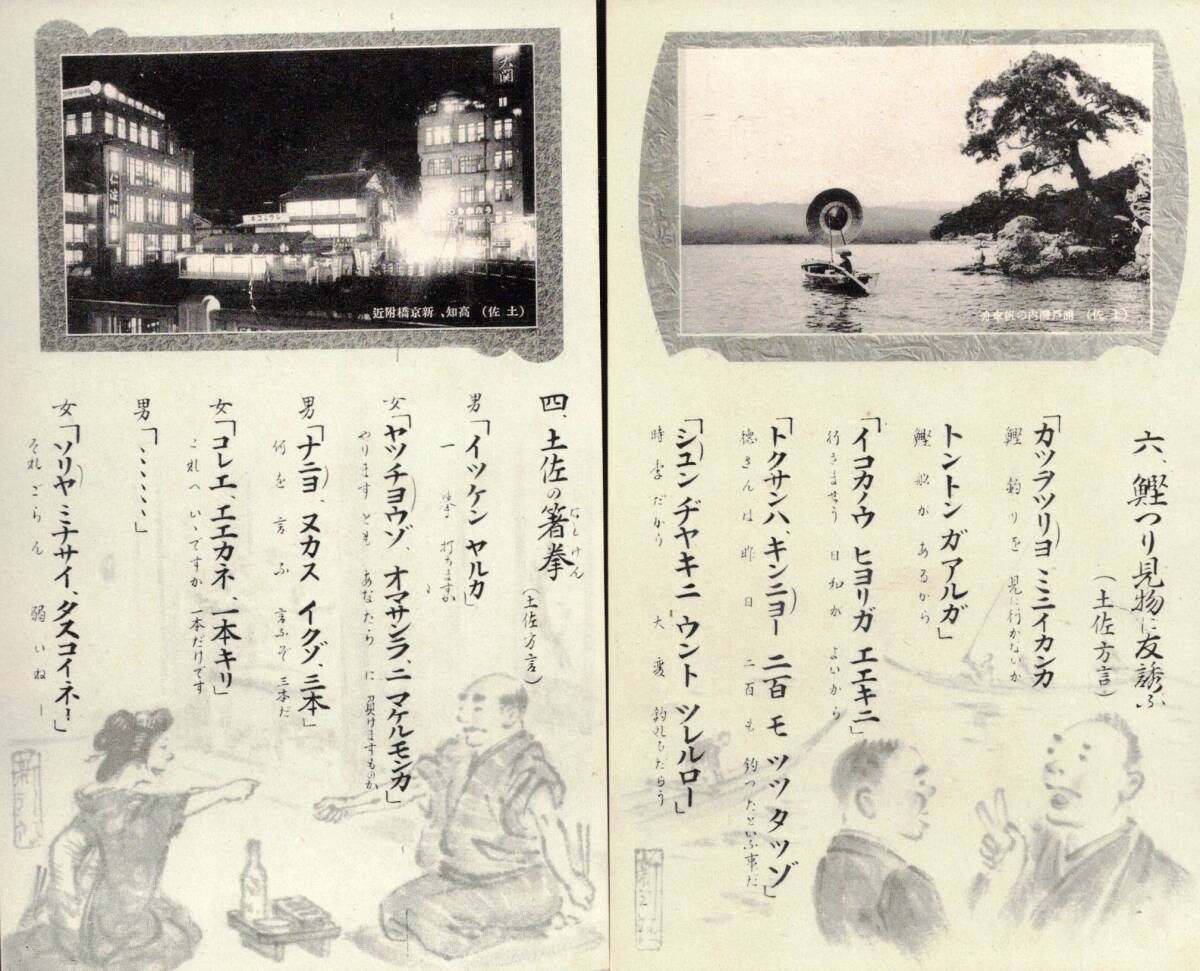 六、鰹つり見物に友誘ふ
(土佐方言)
「カツヲツリヨ ミニイカンカ
鰹釣りを見に行かないか
トントン ガアルガ」
鰹船があるから
「イコカノウ ヒヨリガ エエキニ」
行きませう日和がよいから
「トクサンハ、キンニヨー 二百 モ ツツタツゾ」
徳さんは昨日二百も釣つたといふ事だ
「シュンヂヤキニ ウント ツレルロー」
時季だから大変釣れるだらう
(土佐) 浦戸湾内の帆傘舟
四、土佐の箸拳
はしけん
(土佐方言)
男「イツケン ヤルカ」
一拳打ちますか
女「ヤツチヨウゾ、オマサンラ、ニ マケルモンカ」
やりますともあなたらに負けますものか
男「ナニヨ、ヌカス イクゾ、三本」
何を言ふ言ふぞ三本だ
女「コレエ、エエカネ、一本キリ」
これへいゝですか一本だけです
男「ミミミミ」
女「ソリヤ ミナサイ、タスコイネー」
それごらん弱いねー
(土佐) 高知、新京橋附近
大関
仁淀川